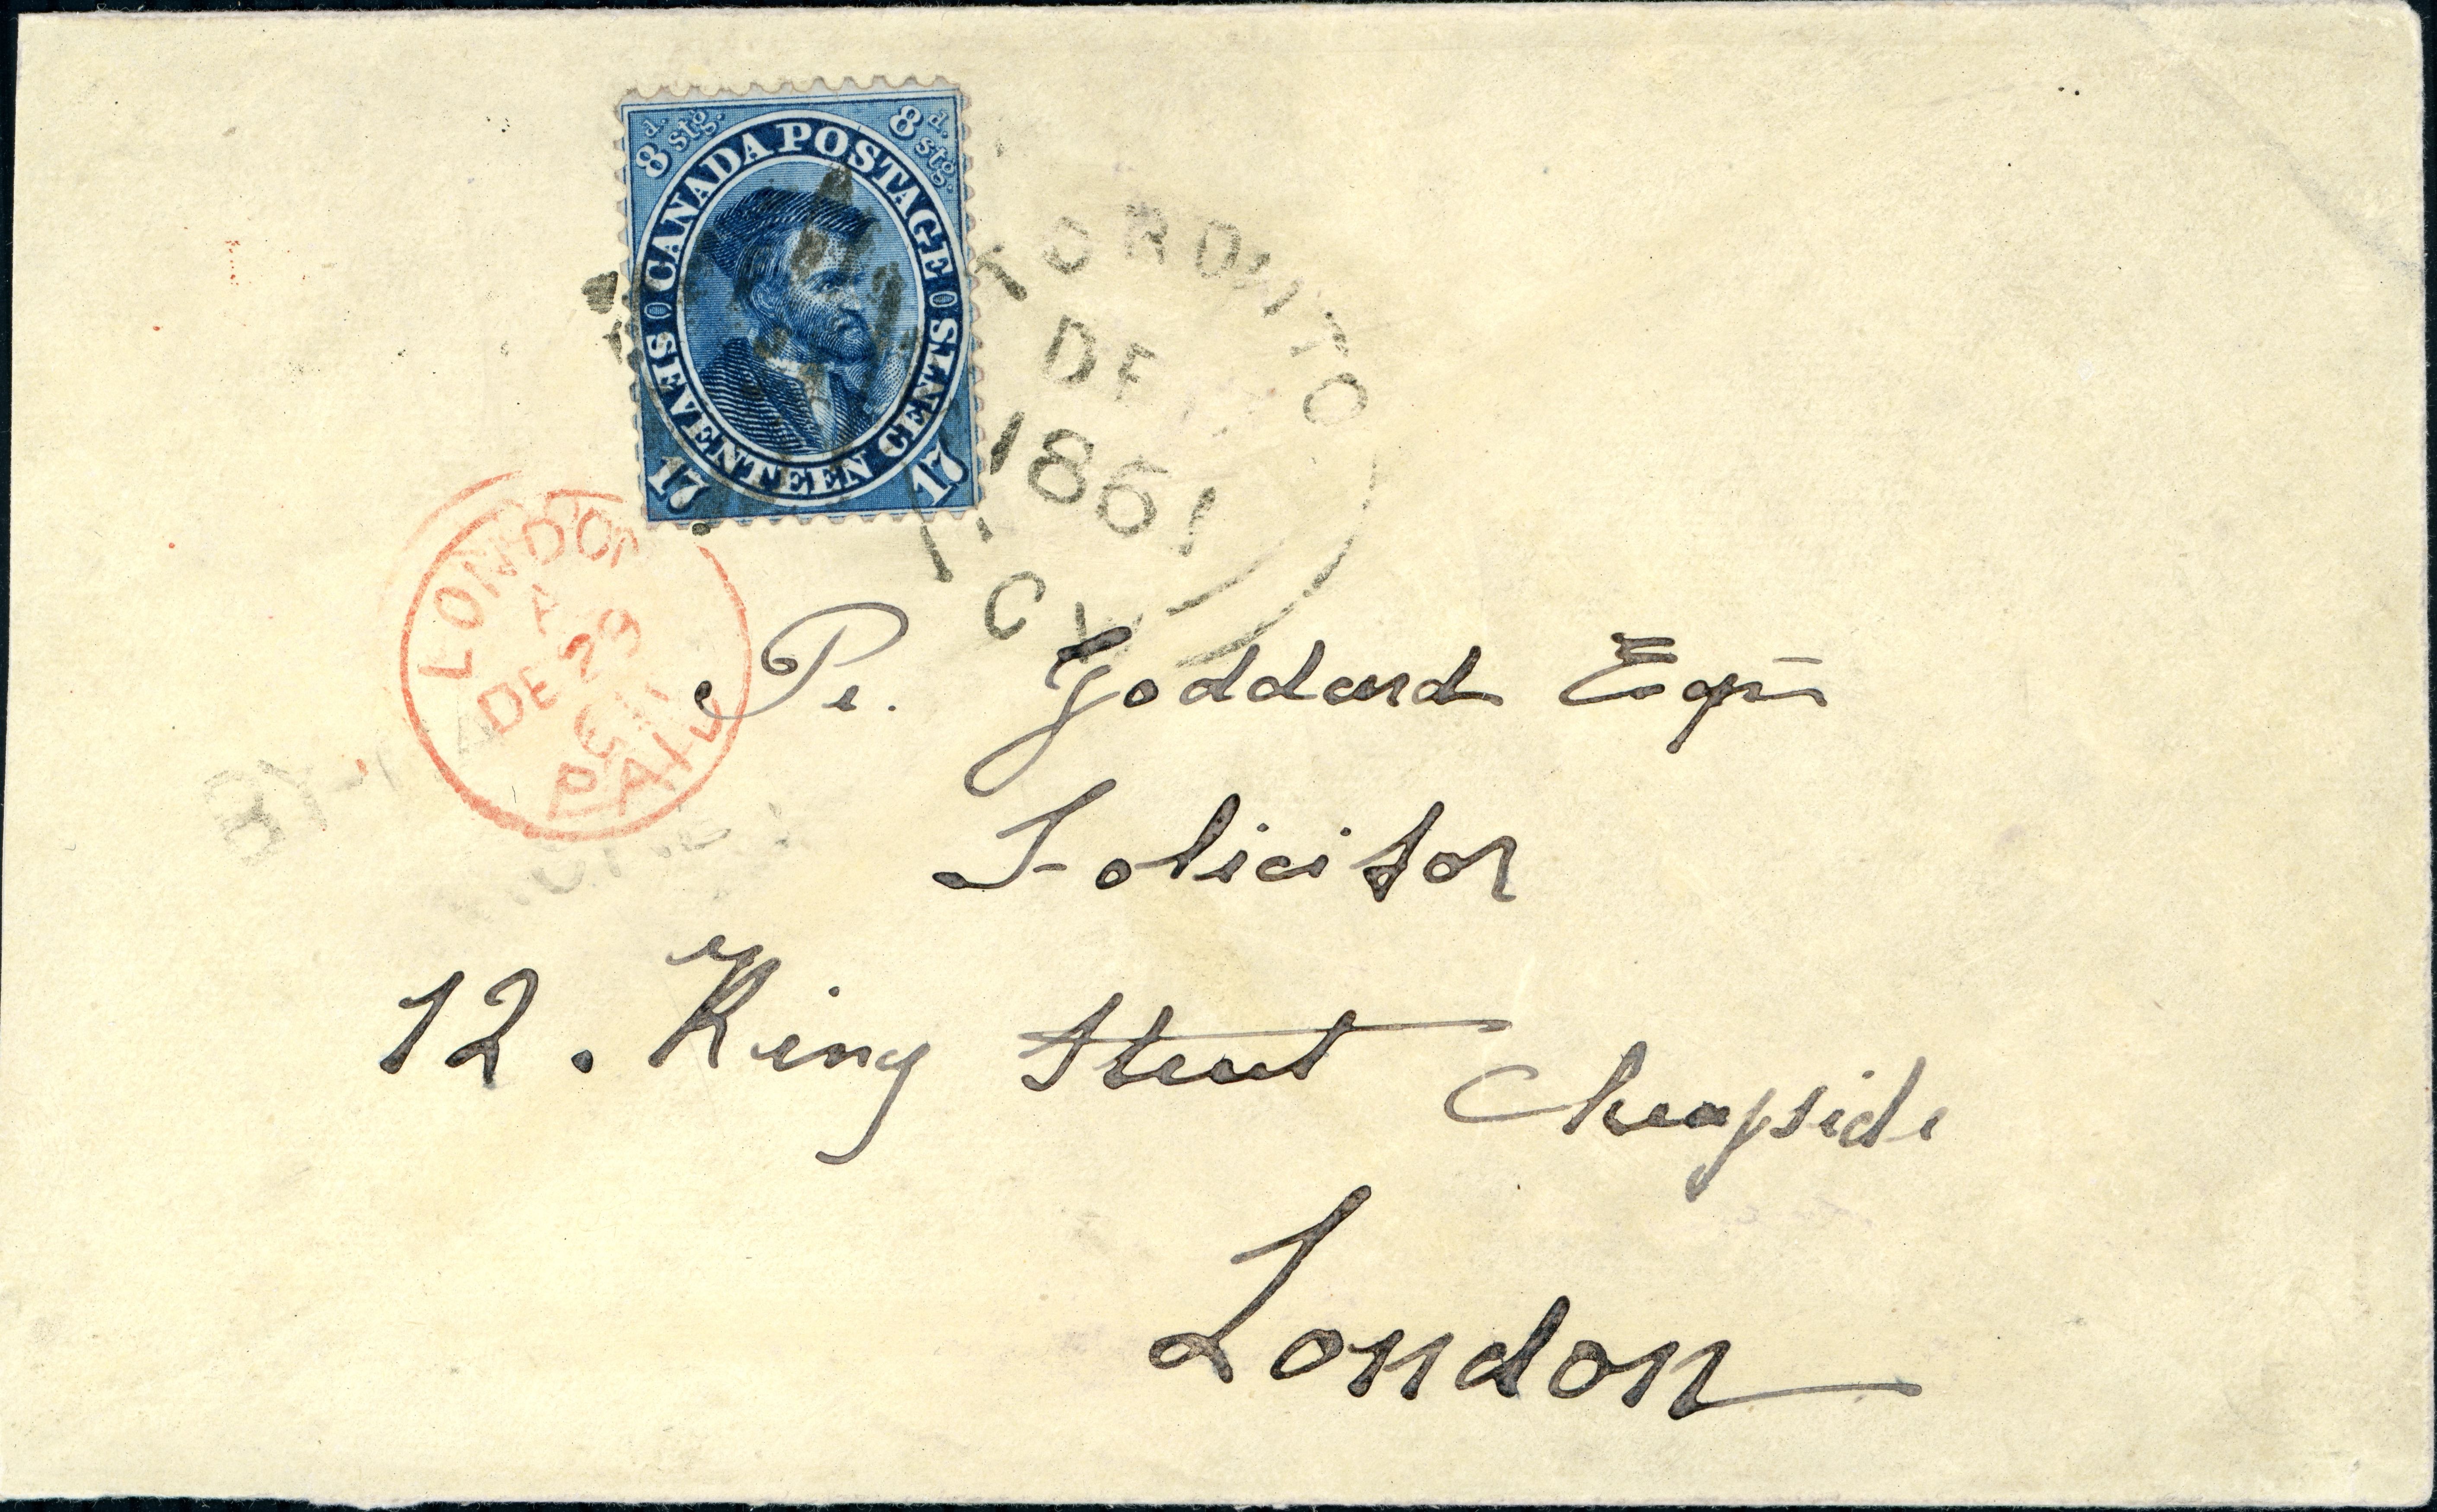 8 d. stg. 8 d. stg.
CANADA POSTAGE
SEVENTEEN CENTS
17 17
TORONTO
DE
1861
C W
LONDON
A
DE 29
61
PAID
Goddard Esqr
Solicitor
12. King Street Cheapside
London